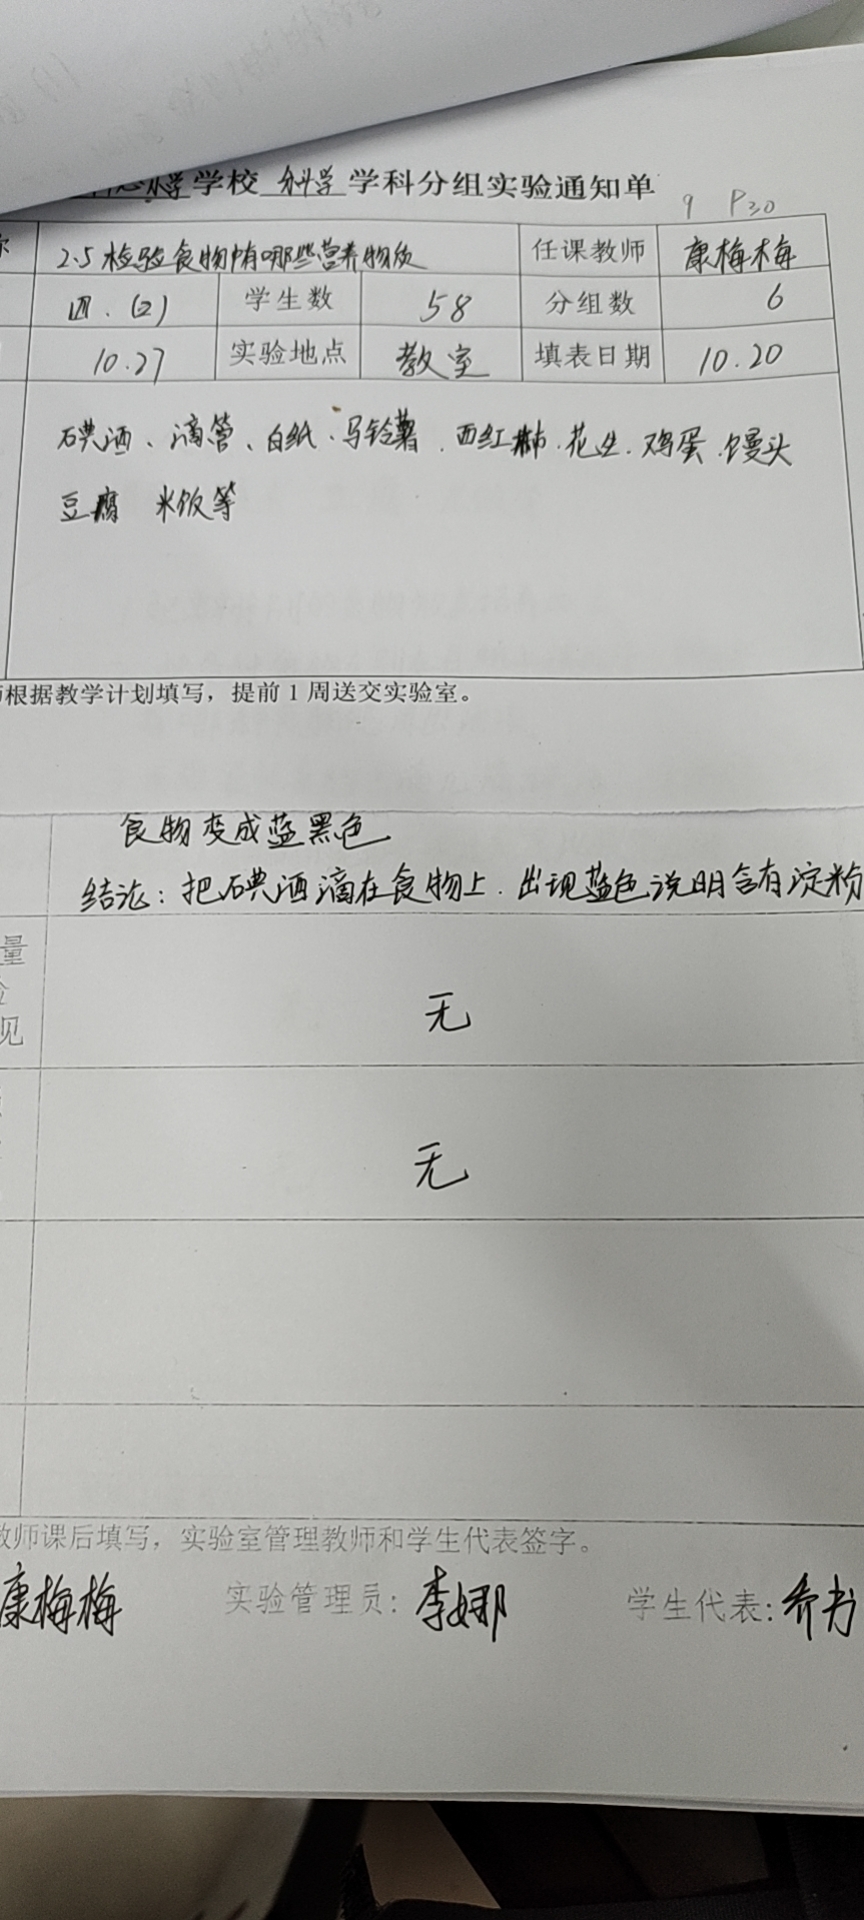 小学学校 科学 学科分组实验通知单
9 P30
称 2.5检验食物中有哪些营养物质 任课教师 康梅梅
四.(2) 学生数 58 分组数 6
10.27 实验地点 教室 填表日期 10.20
碘酒、滴管、白纸、马铃薯、西红柿、花生、鸡蛋、馒头
豆腐 米饭等
师根据教学计划填写，提前1周送交实验室。
食物变成蓝黑色
结论：把碘酒滴在食物上，出现蓝色说明含有淀粉
量
见
无
无
教师课后填写，实验室管理教师和学生代表签字。
康梅梅 实验管理员：李娜 学生代表：乔